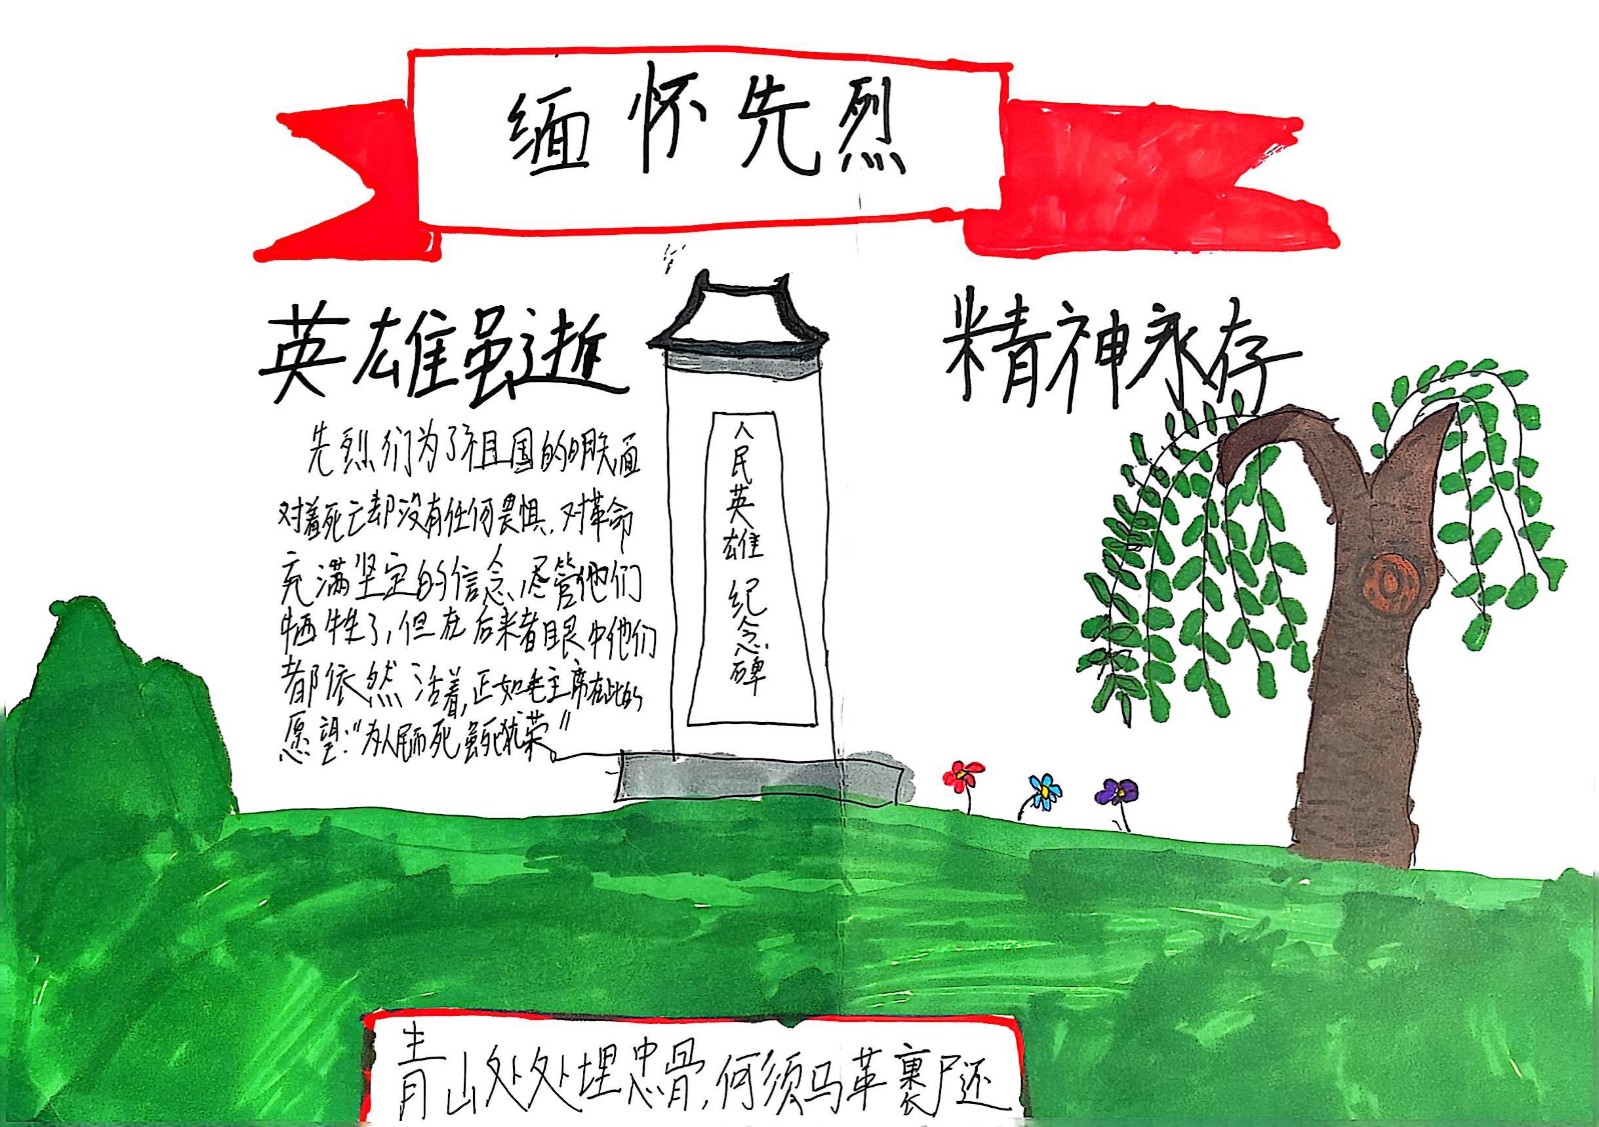 缅怀先烈
英雄虽逝
精神永存
先烈们为了祖国的明天面
对着死亡却没有任何畏惧、对革命
充满坚定的信念,尽管他们
牺牲了,但在后来者眼中他们
都依然活着,正如毛主席在此的
愿望:“为人民而死虽死犹荣”。
人民英雄纪念碑
青山处处埋忠骨,何须马革裹尸还